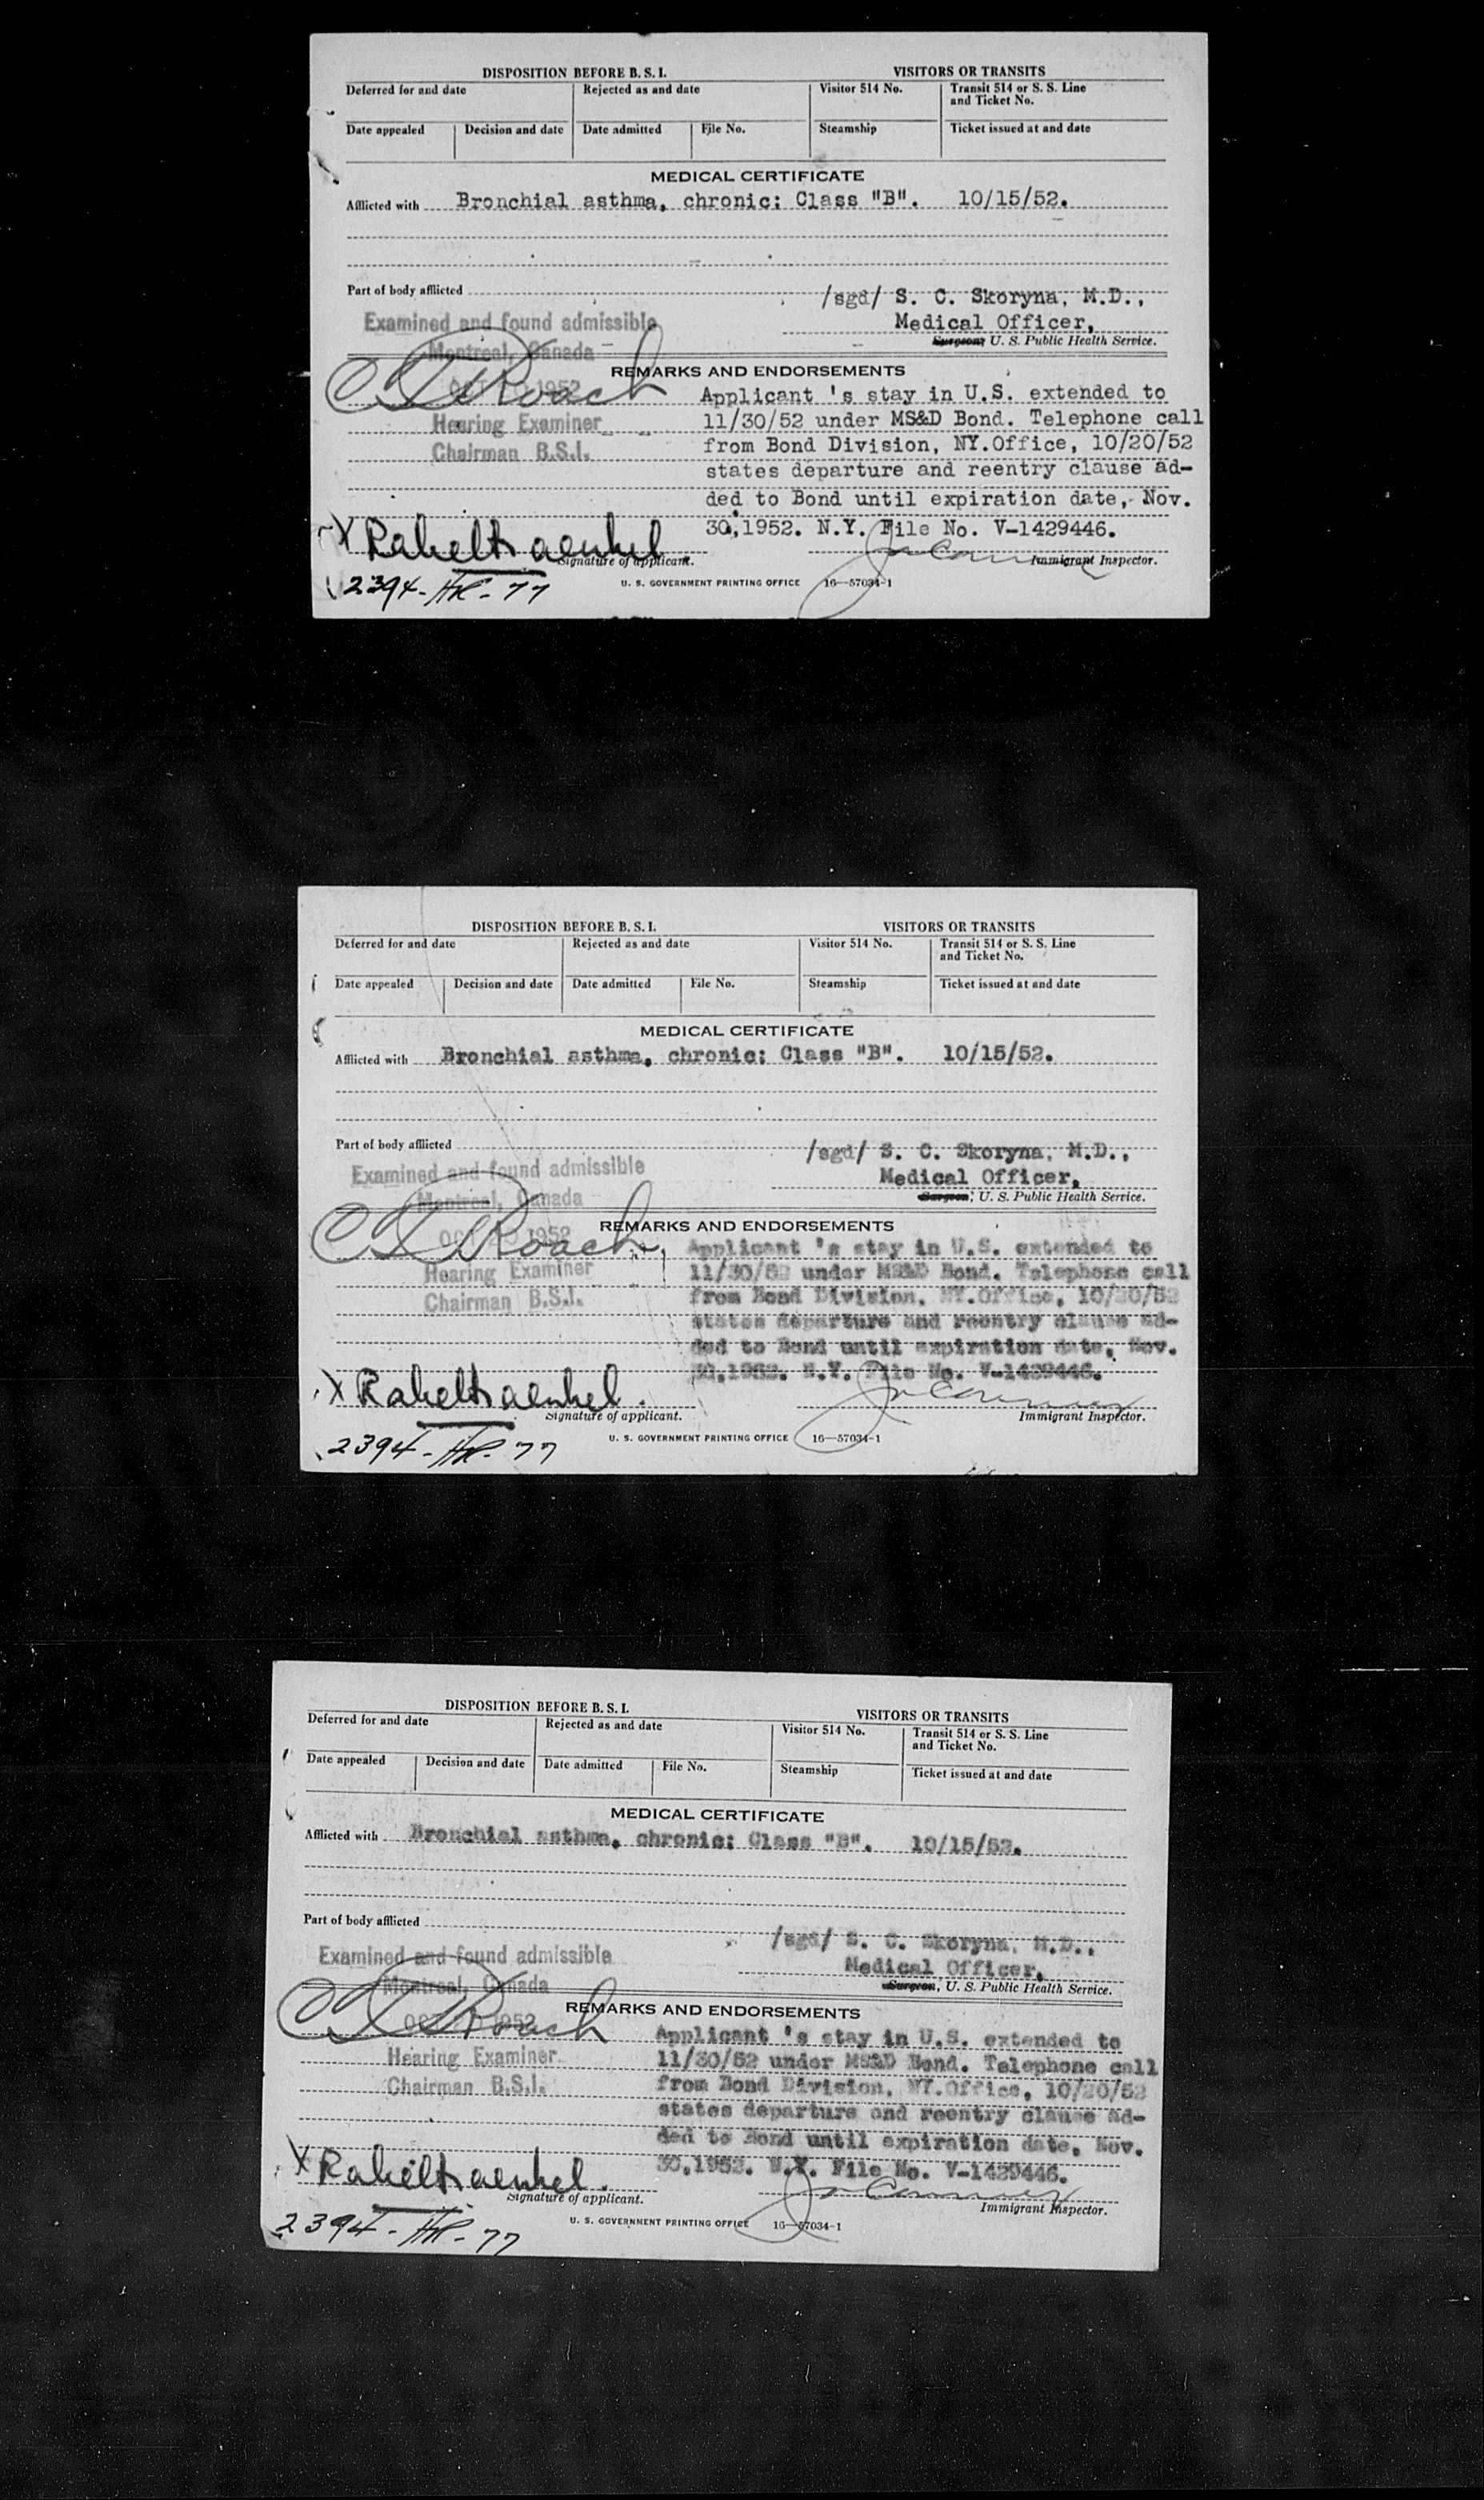 DISPOSITION BEFORE B. S. I. VISITORS OR TRANSITS
Deferred for and date Rejected as and date Visitor 514 No. Transit 514 or S. S. Line and Ticket No.
Date appealed Decision and date Date admitted File No. Steamship Ticket issued at and date
MEDICAL CERTIFICATE
Afflicted with Bronchial asthma, chronic; Class "B". 10/15/52.
Part of body afflicted
/sgd/ S. C. Skoryna, M.D.,
Examined and found admissible
Medical Officer,
Montreal, Canada
Surgeon, U. S. Public Health Service.
REMARKS AND ENDORSEMENTS
OCT 1952
Roach
Applicant 's stay in U.S. extended to
Hearing Examiner 11/30/52 under MS&D Bond. Telephone call
Chairman B.S.I. from Bond Division, NY.Office, 10/20/52
states departure and reentry clause ad-
ded to Bond until expiration date, Nov.
30,1952. N.Y. File No. V-1429446.
X Rahel
Signature of applicant. Immigrant Inspector.
2394-HR-77
U. S. GOVERNMENT PRINTING OFFICE 16—57034-1
DISPOSITION BEFORE B. S. I. VISITORS OR TRANSITS
Deferred for and date Rejected as and date Visitor 514 No. Transit 514 or S. S. Line and Ticket No.
Date appealed Decision and date Date admitted File No. Steamship Ticket issued at and date
MEDICAL CERTIFICATE
Afflicted with Bronchial asthma, chronic; Class "B". 10/15/52.
Part of body afflicted
/sgd/ S. C. Skoryna, M.D.,
Examined and found admissible
Medical Officer,
Montreal, Canada
Surgeon, U. S. Public Health Service.
REMARKS AND ENDORSEMENTS
OCT 20 1952
Roach
Applicant 's stay in U.S. extended to
Hearing Examiner 11/30/52 under MS&D Bond. Telephone call
Chairman B.S.I. from Bond Division, NY.Office, 10/20/52
states departure and reentry clause ad-
ded to Bond until expiration date, Nov.
30,1952. N.Y. File No. V-1429446.
X Rahel
Signature of applicant. Immigrant Inspector.
2394-HR-77
U. S. GOVERNMENT PRINTING OFFICE 16—57034-1
DISPOSITION BEFORE B. S. I. VISITORS OR TRANSITS
Deferred for and date Rejected as and date Visitor 514 No. Transit 514 or S. S. Line and Ticket No.
Date appealed Decision and date Date admitted File No. Steamship Ticket issued at and date
MEDICAL CERTIFICATE
Afflicted with Bronchial asthma, chronic; Class "B". 10/15/52.
Part of body afflicted
/sgd/ S. C. Skoryna, M.D.,
Examined and found admissible
Medical Officer,
Montreal, Canada
Surgeon, U. S. Public Health Service.
REMARKS AND ENDORSEMENTS
OCT 20 1952
Roach
Applicant 's stay in U.S. extended to
Hearing Examiner 11/30/52 under MS&D Bond. Telephone call
Chairman B.S.I. from Bond Division, NY.Office, 10/20/52
states departure and reentry clause ad-
ded to Bond until expiration date, Nov.
30,1952. N.Y. File No. V-1429446.
X Rahel
Signature of applicant. Immigrant Inspector.
2394-HR-77
U. S. GOVERNMENT PRINTING OFFICE 16—57034-1